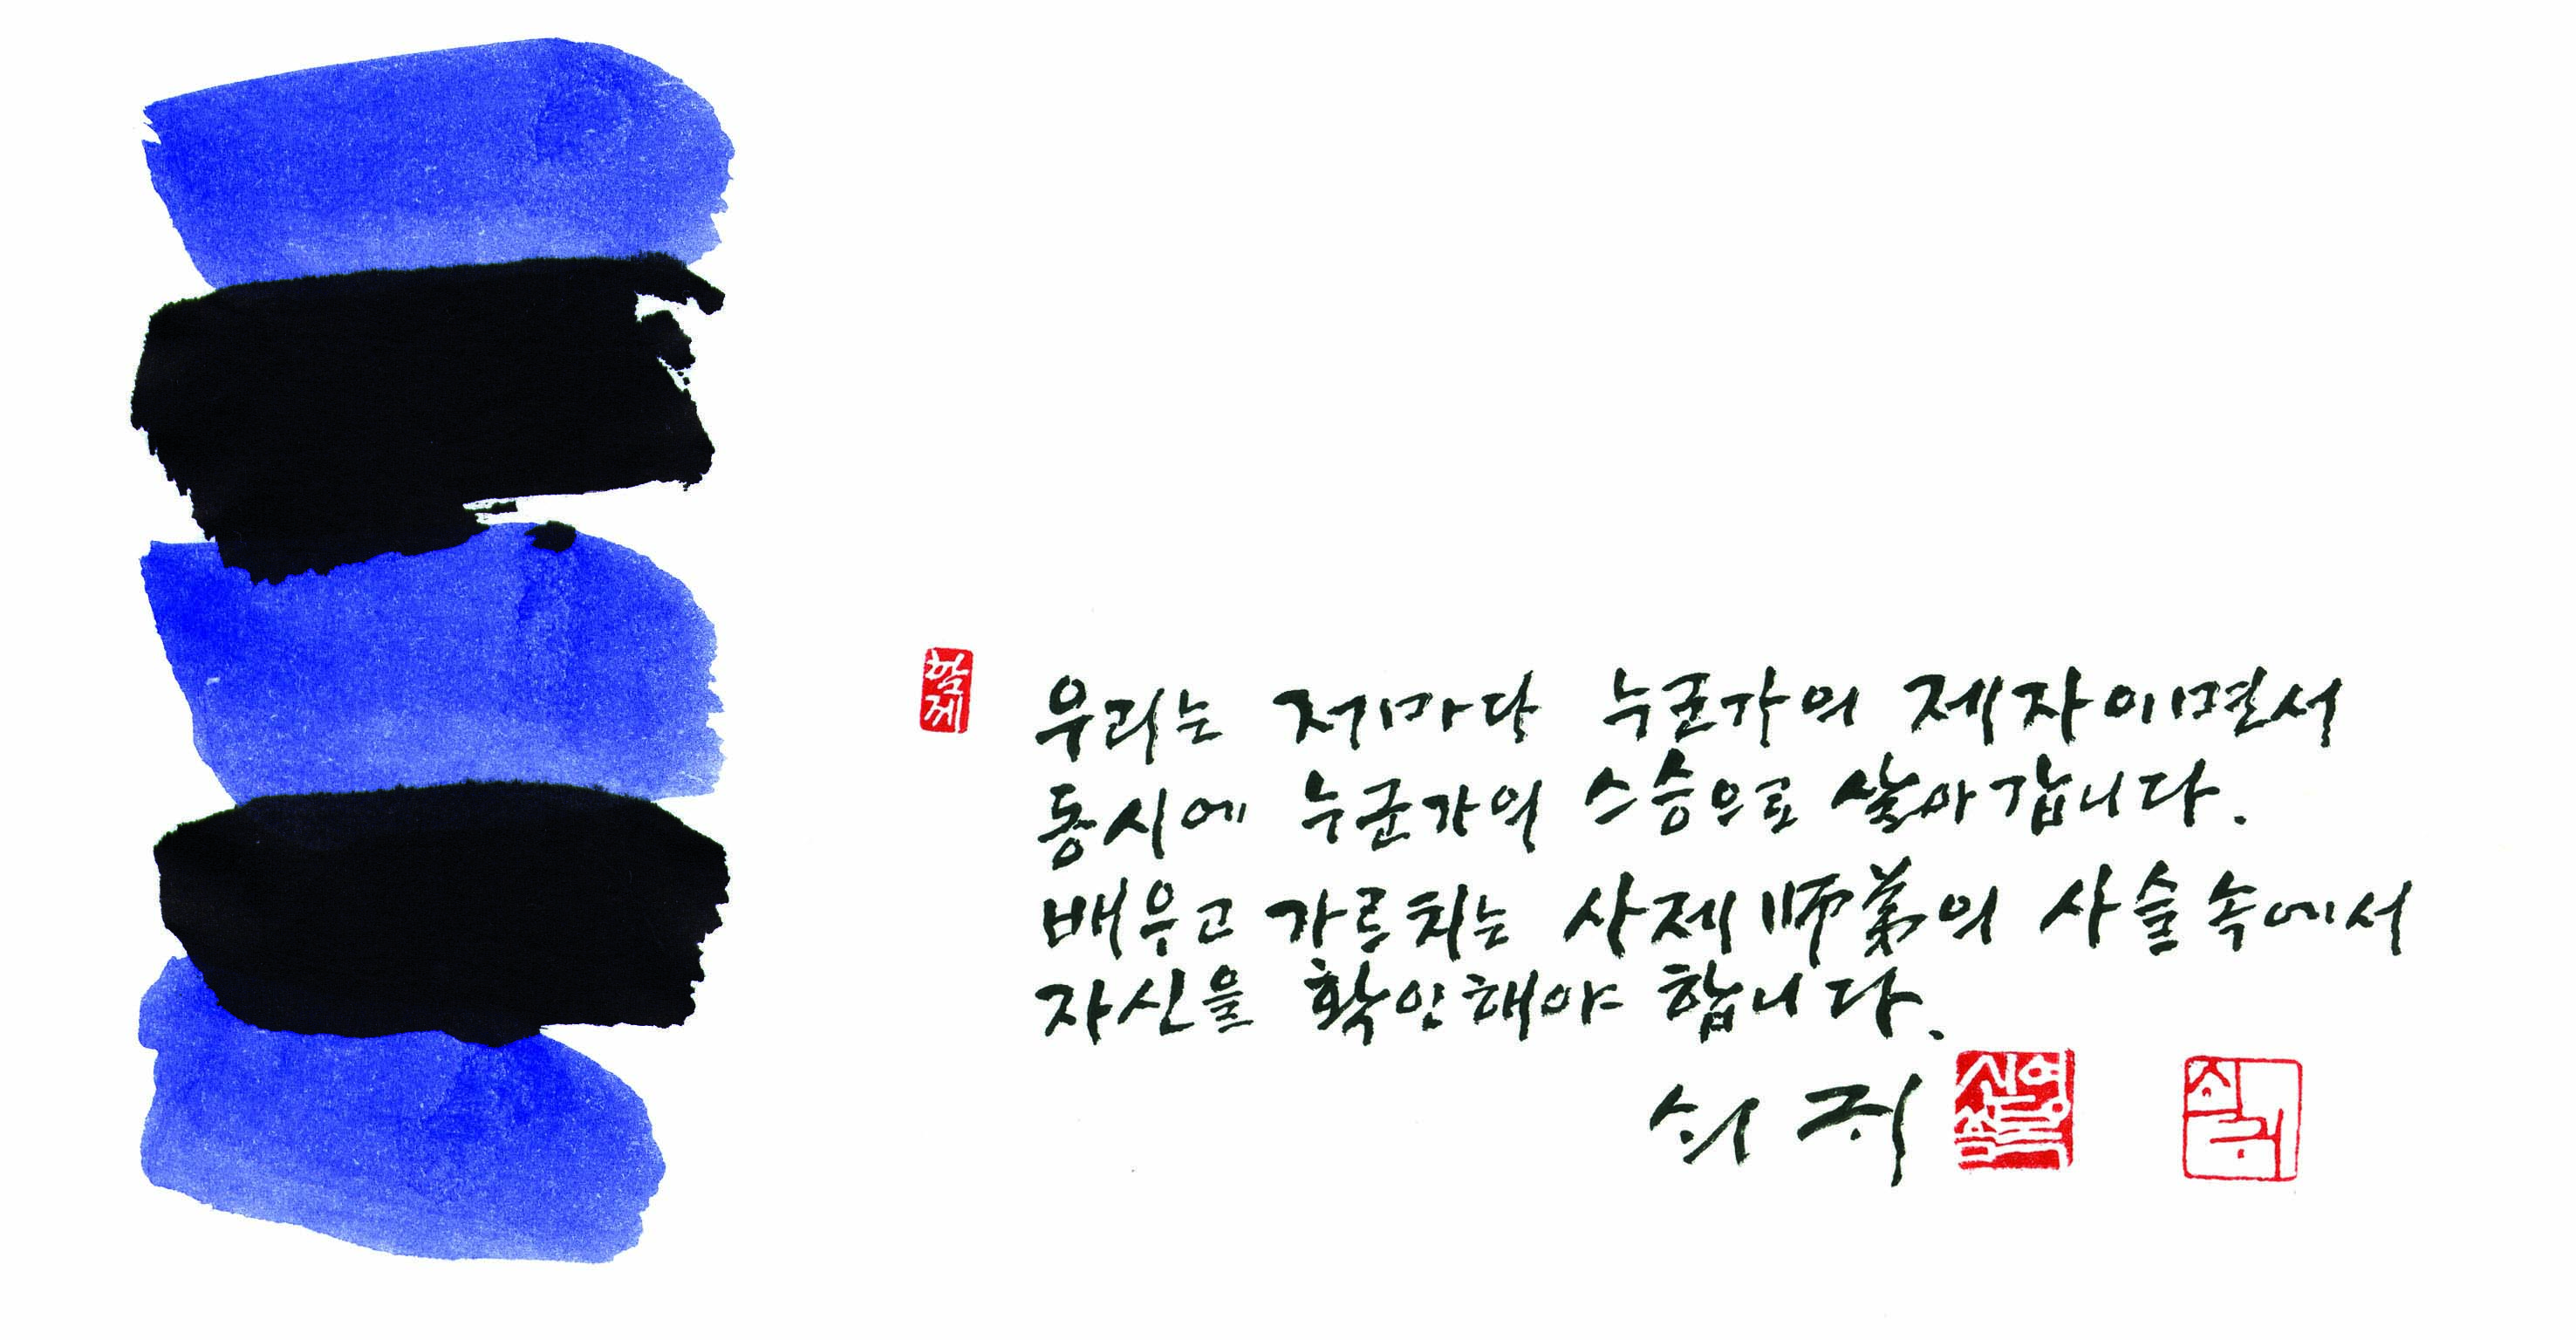 함께
우리는 저마다 누군가의 제자이면서
동시에 누군가의 스승으로 살아갑니다.
배우고 가르치는 사제師弟의 사슬 속에서
자신을 확인해야 합니다.
쇠귀